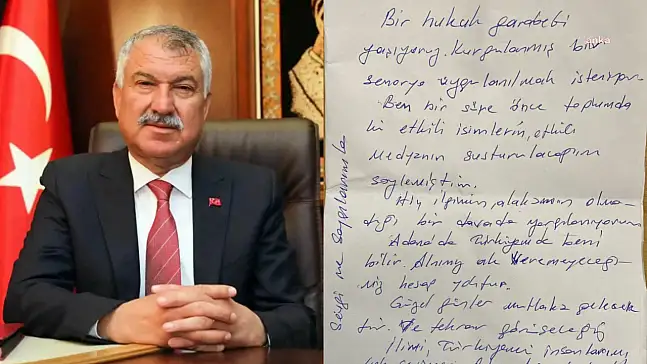 Bir hukuk garabeti
anka
yaşıyoruz. Kurgulanmış bir
senaryo uygulanılmak isteniyor.
Ben bir süre önce toplumda
ki etkili isimlerin, etkili
medyanın susturulacağını
söylemiştim.
Hiç ilgimin, alakamın olma
dığı bir davada yargılanıyorum
Adana'da Türkiye'de beni
bilir. Alnımız ak veremeyeceği
miz hesap yoktur.
Güzel günler mutlaka gelecek
tir. Ve tekrar görüşeceğiz
İlimi, Türkiyemi insanlarımı
Sevgi ve saygılarımla